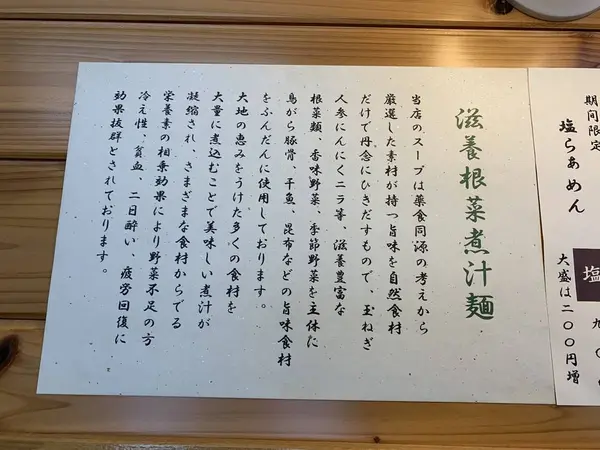 期間限定
塩らあめん
塩
大盛は二〇〇円増
滋養根菜煮汁麺
当店のスープは薬食同源の考えから
厳選した素材が持つ旨味を自然食材
だけで丹念にひきだすもので、玉ねぎ
人参にんにくニラ等、滋養豊富な
根菜類、香味野菜、季節野菜を主体に
鳥がら豚骨、干魚、昆布などの旨味食材
をふんだんに使用しております。
大地の恵みをうけた多くの食材を
大量に煮込むことで美味しい煮汁が
凝縮され、さまざまな食材からでる
栄養素の相乗効果により野菜不足の方
冷え性、貧血、二日酔い、疲労回復に
効果抜群とされております。